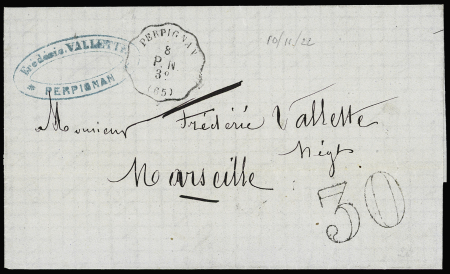 Frédéric VALLETTE
* PERPIGNAN
PERPIGNAN
8
P. N
3º
(65)
10/11/22
Monsieur Frédéric Vallette
Négt
Marseille
30